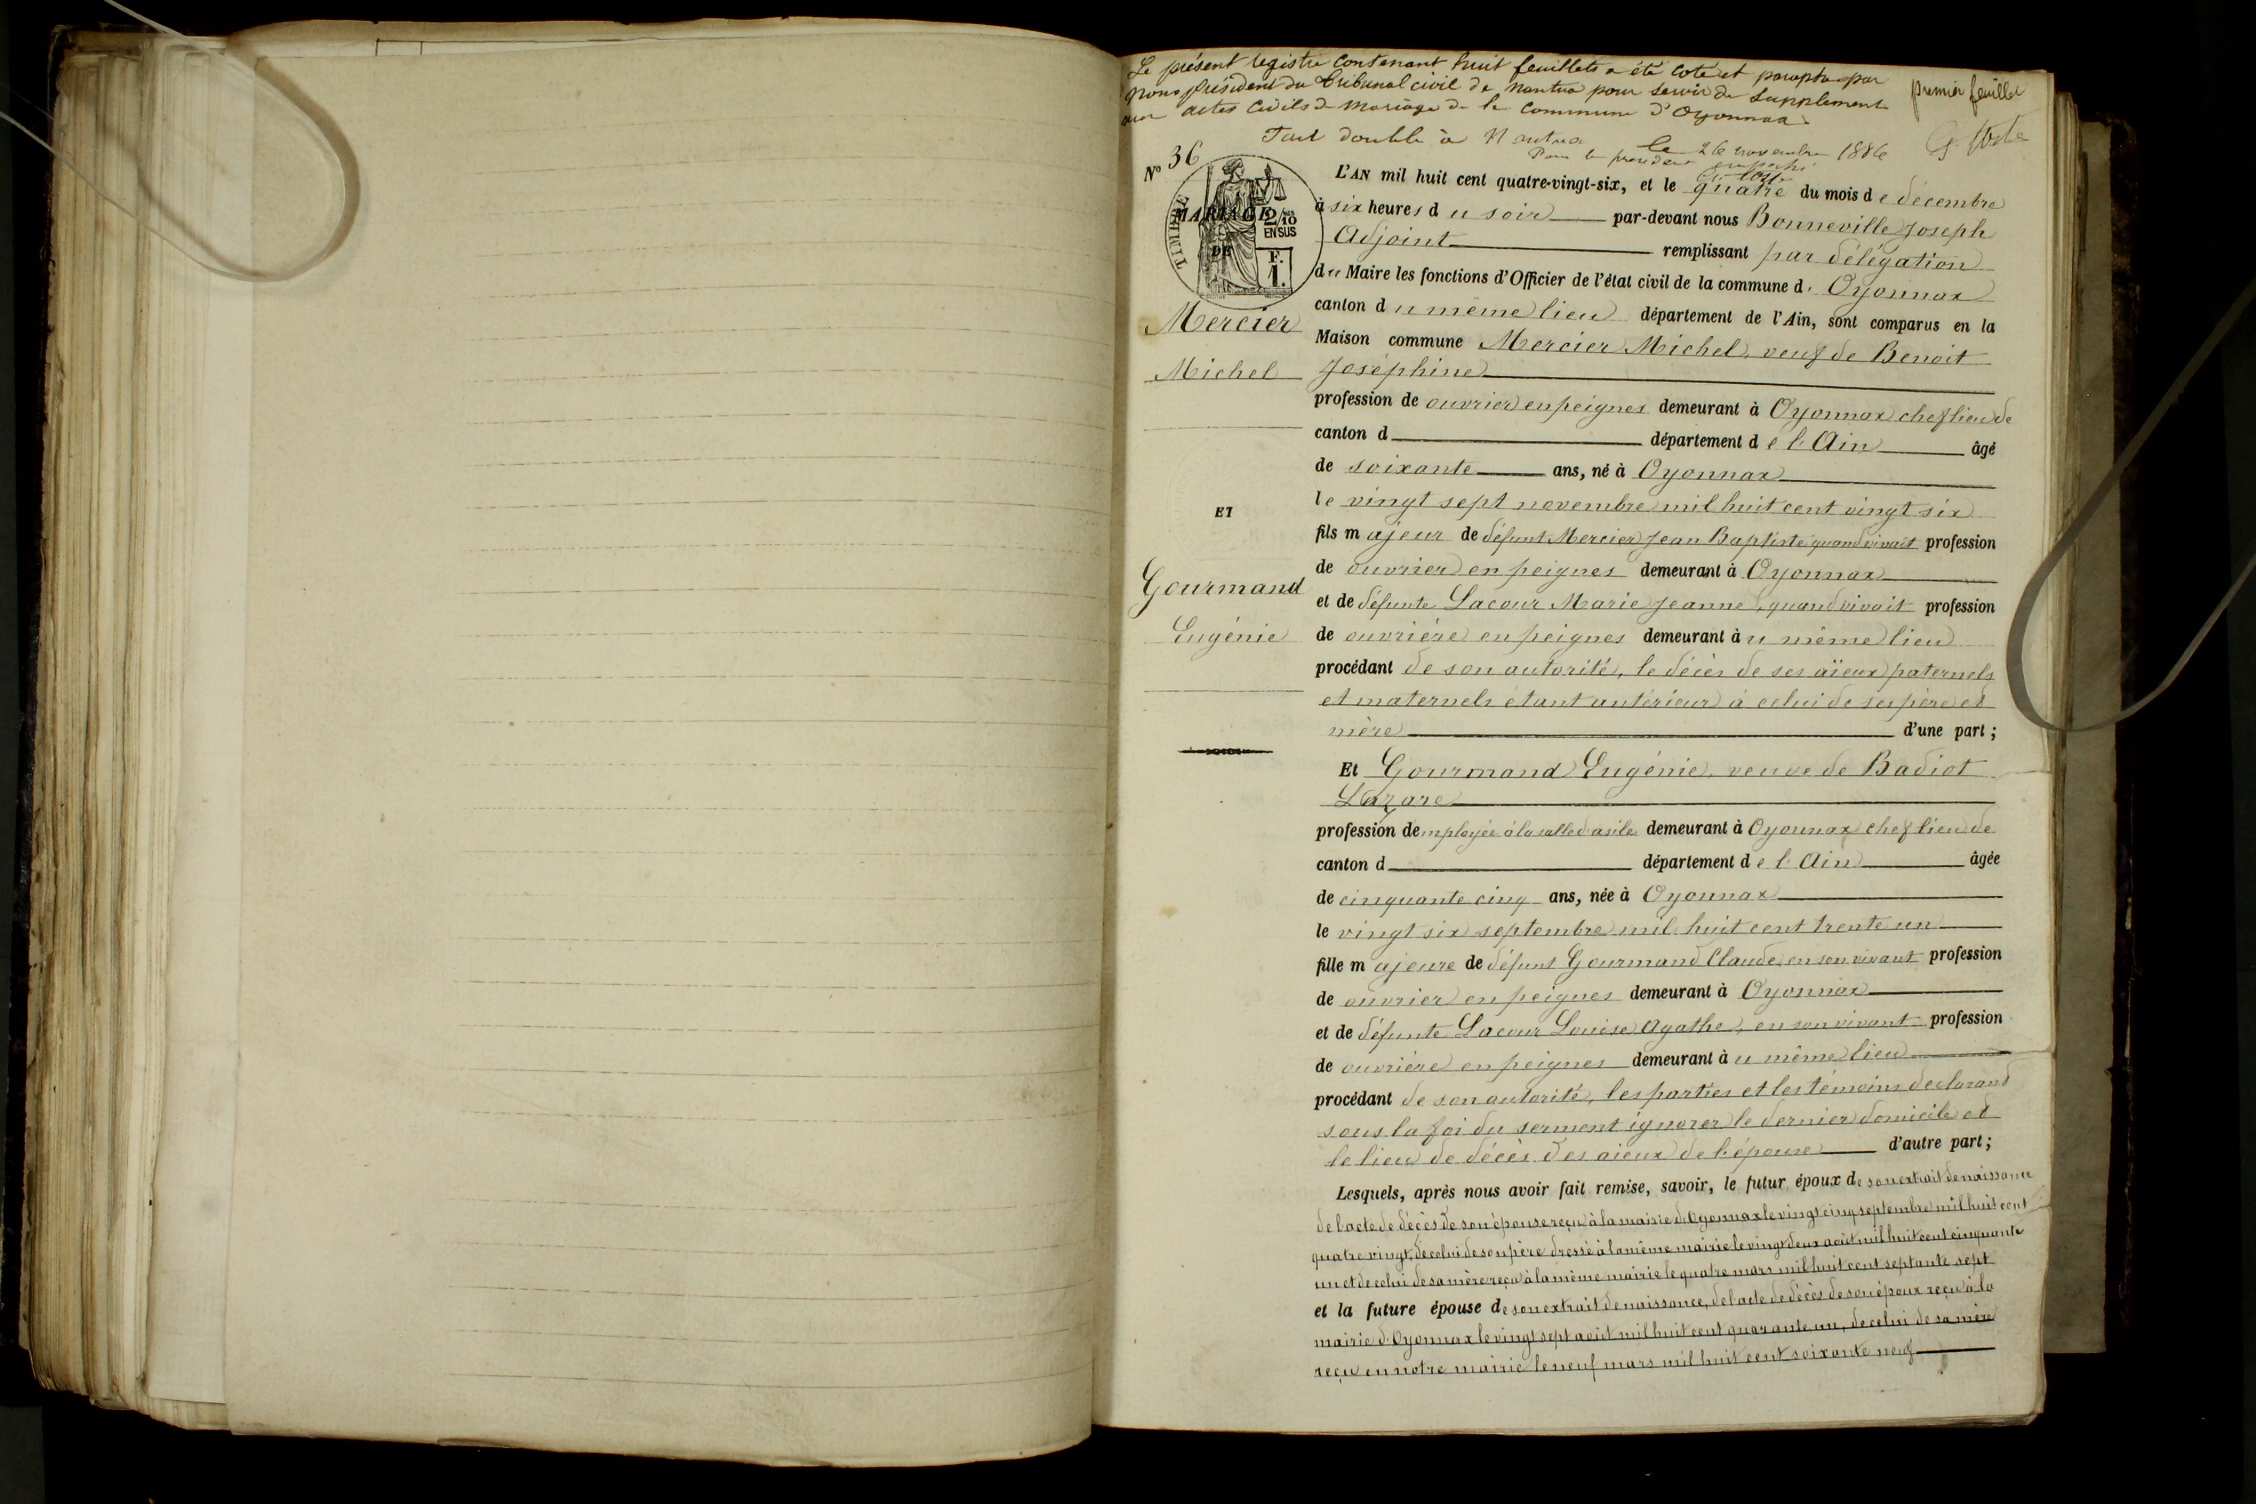 Le présent registre contenant huit feuillets a été coté et paraphé par
nous président du tribunal civil de Nantua pour servir de supplément
aux actes civils de mariage de la commune d'Oyonnax.
premier feuillet
Fait double à Nantua le 26 novembre 1886
Pour le président empêché
N° 36
TIMBRE
MARIAGE
2/10
EN SUS
DE
F.
1.
Mercier
Michel
ET
Gourmand
Eugénie
L'AN mil huit cent quatre-vingt-six, et le quatre du mois de décembre
à six heures du soir par-devant nous Bonneville Joseph
Adjoint remplissant par délégation
du Maire les fonctions d'Officier de l'état civil de la commune d' Oyonnax
canton du même lieu département de l'Ain, sont comparus en la
Maison commune Mercier Michel, veuf de Benoit
Joséphine
profession de ouvrier en peignes demeurant à Oyonnax chef lieu de
canton d département de l'Ain âgé
de soixante ans, né à Oyonnax
le vingt sept novembre mil huit cent vingt six
fils majeur de défunt Mercier Jean Baptiste quand vivait profession
de ouvrier en peignes demeurant à Oyonnax
et de défunte Lacour Marie Jeanne, quand vivait profession
de ouvrière en peignes demeurant àu même lieu
procédant de son autorité, le décès de ses aïeux paternels
et maternels étant antérieur à celui de ses père et
mère d'une part ;
Et Gourmand Eugénie, veuve de Badiot
Lazare
profession demployée à la salle d'asile demeurant à Oyonnax chef lieu de
canton d département de l'Ain âgée
de cinquante cinq ans, née à Oyonnax
le vingt six septembre mil huit cent trente un
fille majeure de défunt Gourmand Claude, en son vivant profession
de ouvrier en peignes demeurant à Oyonnax
et de défunte Lacour Louise Agathe, en son vivant profession
de ouvrière en peignes demeurant àu même lieu
procédant de son autorité, les parties et les témoins déclarant
sous la foi du serment ignorer le dernier domicile et
le lieu de décès des aieux de l'épouse d'autre part ;
Lesquels, après nous avoir fait remise, savoir, le futur époux de son extrait de naissance
de l'acte de décès de son épouse reçu à la mairie d'Oyonnax le vingt cinq septembre mil huit cent
quatre vingt, de celui de son père dressé à la même mairie le vingt deux août mil huit cent cinquante
un et de celui de sa mère reçu à la même mairie le quatre mars mil huit cent septante sept
et la future épouse de son extrait de naissance, de l'acte de décès de son époux reçu à la
mairie d'Oyonnax le vingt sept août mil huit cent quarante un, de celui de sa mère
reçu en notre mairie le neuf mars mil huit cent soixante neuf